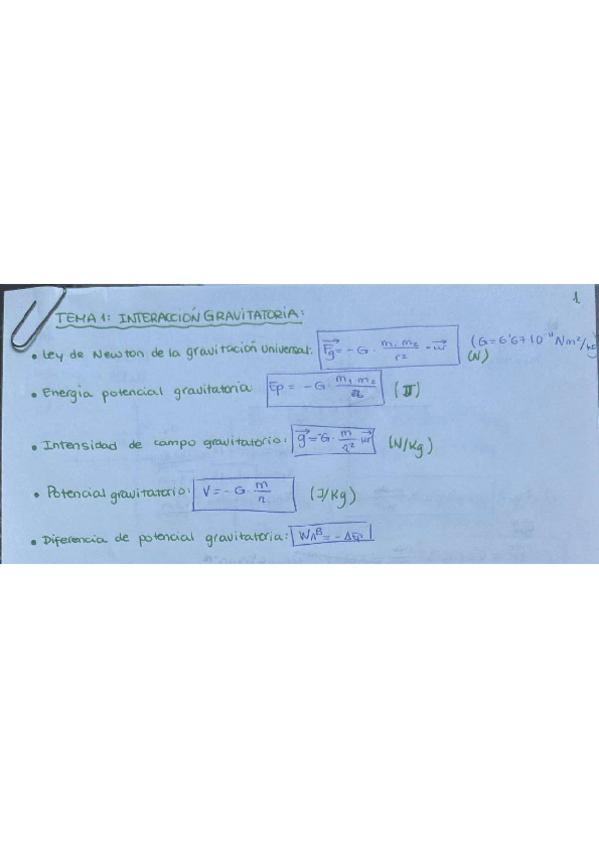 1
TEMA 1: INTERACCIÓN GRAVITATORIA:
• Ley de Newton de la gravitación Universal: F⃗g = - G · m₁ m₂ / r² · u⃗r (G = 6'67·10⁻¹¹ Nm²/kg) (N)
• Energía potencial gravitatoria: Ep = - G · m₁ m₂ / r (J)
• Intensidad de campo gravitatorio: g⃗ = - G · m / r² u⃗r (N/Kg)
• Potencial gravitatorio: V = - G · m / r (J/Kg)
• Diferencia de potencial gravitatoria: W_A^B = - ΔEp